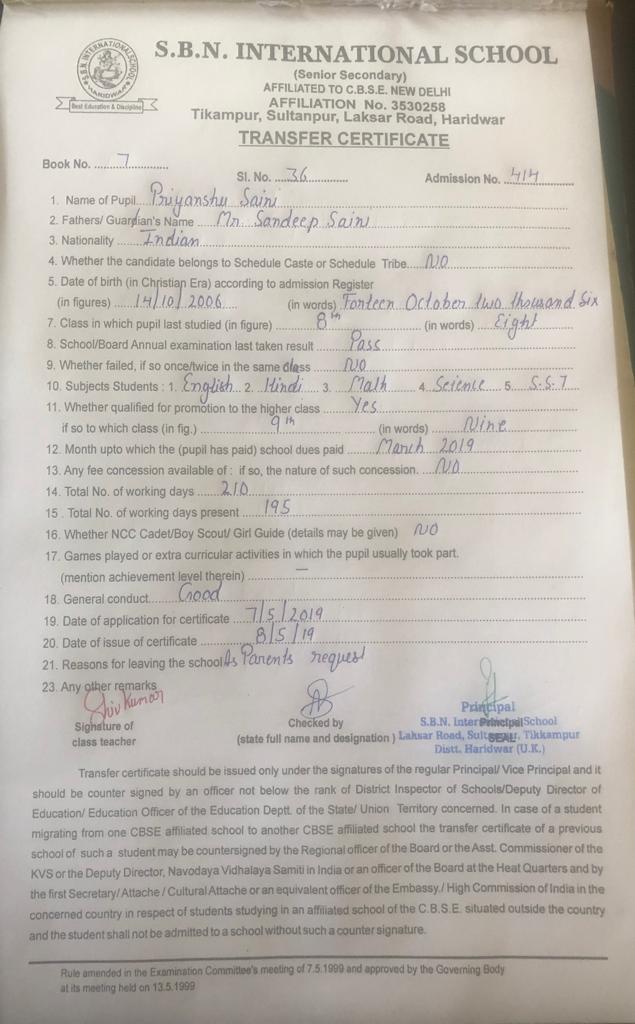 S.B.N. INTERNATIONAL SCHOOL
HARIDWAR
Best Education & Discipline
S.B.N. INTERNATIONAL SCHOOL
(Senior Secondary)
AFFILIATED TO C.B.S.E. NEW DELHI
AFFILIATION No. 3530258
Tikampur, Sultanpur, Laksar Road, Haridwar
TRANSFER CERTIFICATE
Book No. 7
Sl. No. 36 Admission No. 414
1. Name of Pupil Priyanshu Saini
2. Fathers/ Guardian's Name Mr. Sandeep Saini
3. Nationality Indian
4. Whether the candidate belongs to Schedule Caste or Schedule Tribe NO
5. Date of birth (in Christian Era) according to admission Register
(in figures) 14/10/2006 (in words) Forteen October two thousand Six
7. Class in which pupil last studied (in figure) 8th (in words) Eight
8. School/Board Annual examination last taken result Pass
9. Whether failed, if so once/twice in the same class NO
10. Subjects Students : 1. English 2. Hindi 3. Math 4. Science 5. S.S.T
11. Whether qualified for promotion to the higher class Yes
if so to which class (in fig.) 9th (in words) Nine
12. Month upto which the (pupil has paid) school dues paid March 2019
13. Any fee concession available of : if so, the nature of such concession. NO
14. Total No. of working days 210
15. Total No. of working days present 195
16. Whether NCC Cadet/Boy Scout/ Girl Guide (details may be given) NO
17. Games played or extra curricular activities in which the pupil usually took part.
(mention achievement level therein) —
18. General conduct Good
19. Date of application for certificate 7/5/2019
20. Date of issue of certificate 8/5/19
21. Reasons for leaving the school As Parents request
23. Any other remarks
Shiv Kumar
Signature of
class teacher
Checked by
(state full name and designation)
Principal
S.B.N. Inter Principal School
Laksar Road, SEAL Tikkampur
Distt. Haridwar (U.K.)
Transfer certificate should be issued only under the signatures of the regular Principal/ Vice Principal and it
should be counter signed by an officer not below the rank of District Inspector of Schools/Deputy Director of
Education/ Education Officer of the Education Deptt. of the State/ Union Territory concerned. In case of a student
migrating from one CBSE affiliated school to another CBSE affiliated school the transfer certificate of a previous
school of such a student may be countersigned by the Regional officer of the Board or the Asst. Commissioner of the
KVS or the Deputy Director, Navodaya Vidhalaya Samiti in India or an officer of the Board at the Heat Quarters and by
the first Secretary/ Attache / Cultural Attache or an equivalent officer of the Embassy./ High Commission of India in the
concerned country in respect of students studying in an affiliated school of the C.B.S.E. situated outside the country
and the student shall not be admitted to a school without such a counter signature.
Rule amended in the Examination Committee's meeting of 7.5.1999 and approved by the Governing Body
at its meeting held on 13.5.1999